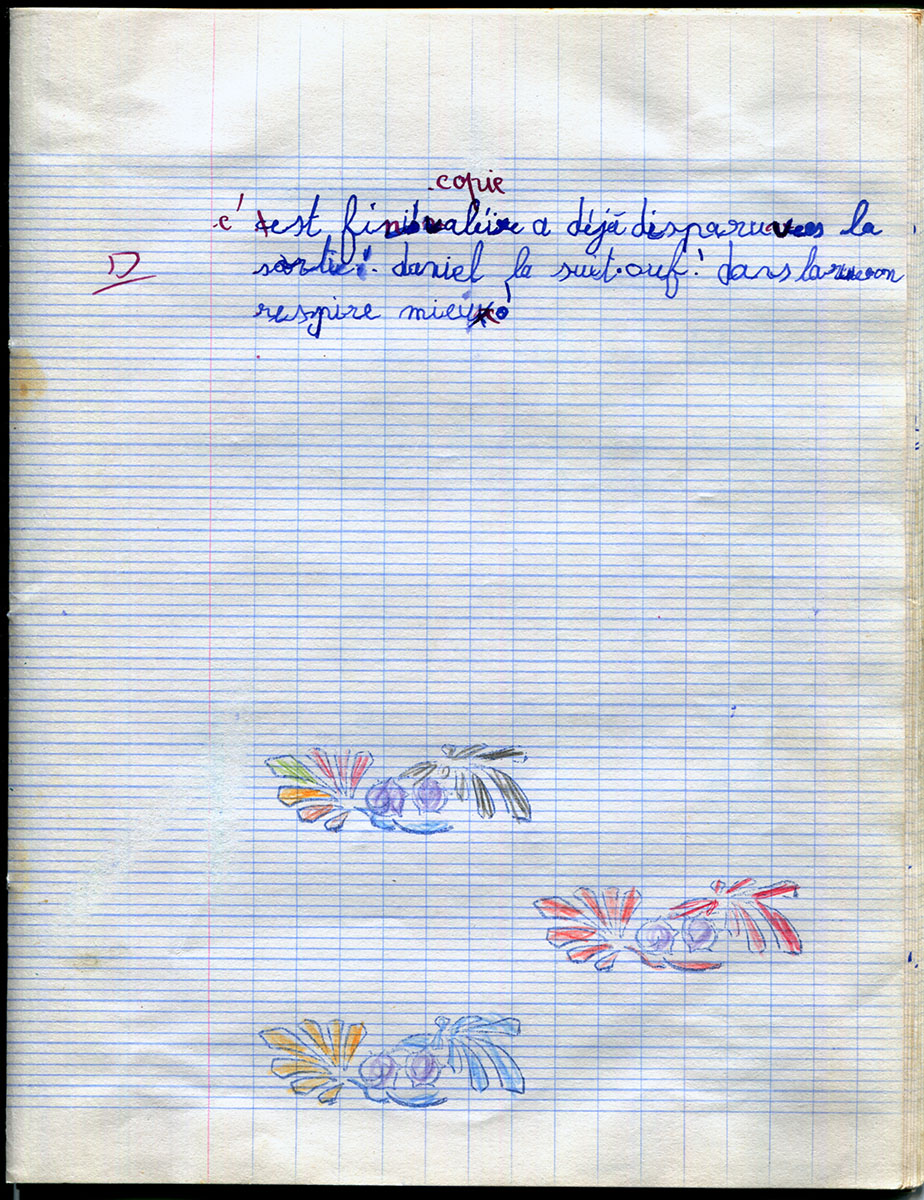 copie
c'est fini valérie a déjà disparu vers la
D
sortie! daniel la suit. ouf! dans la rue on
respire mieux!